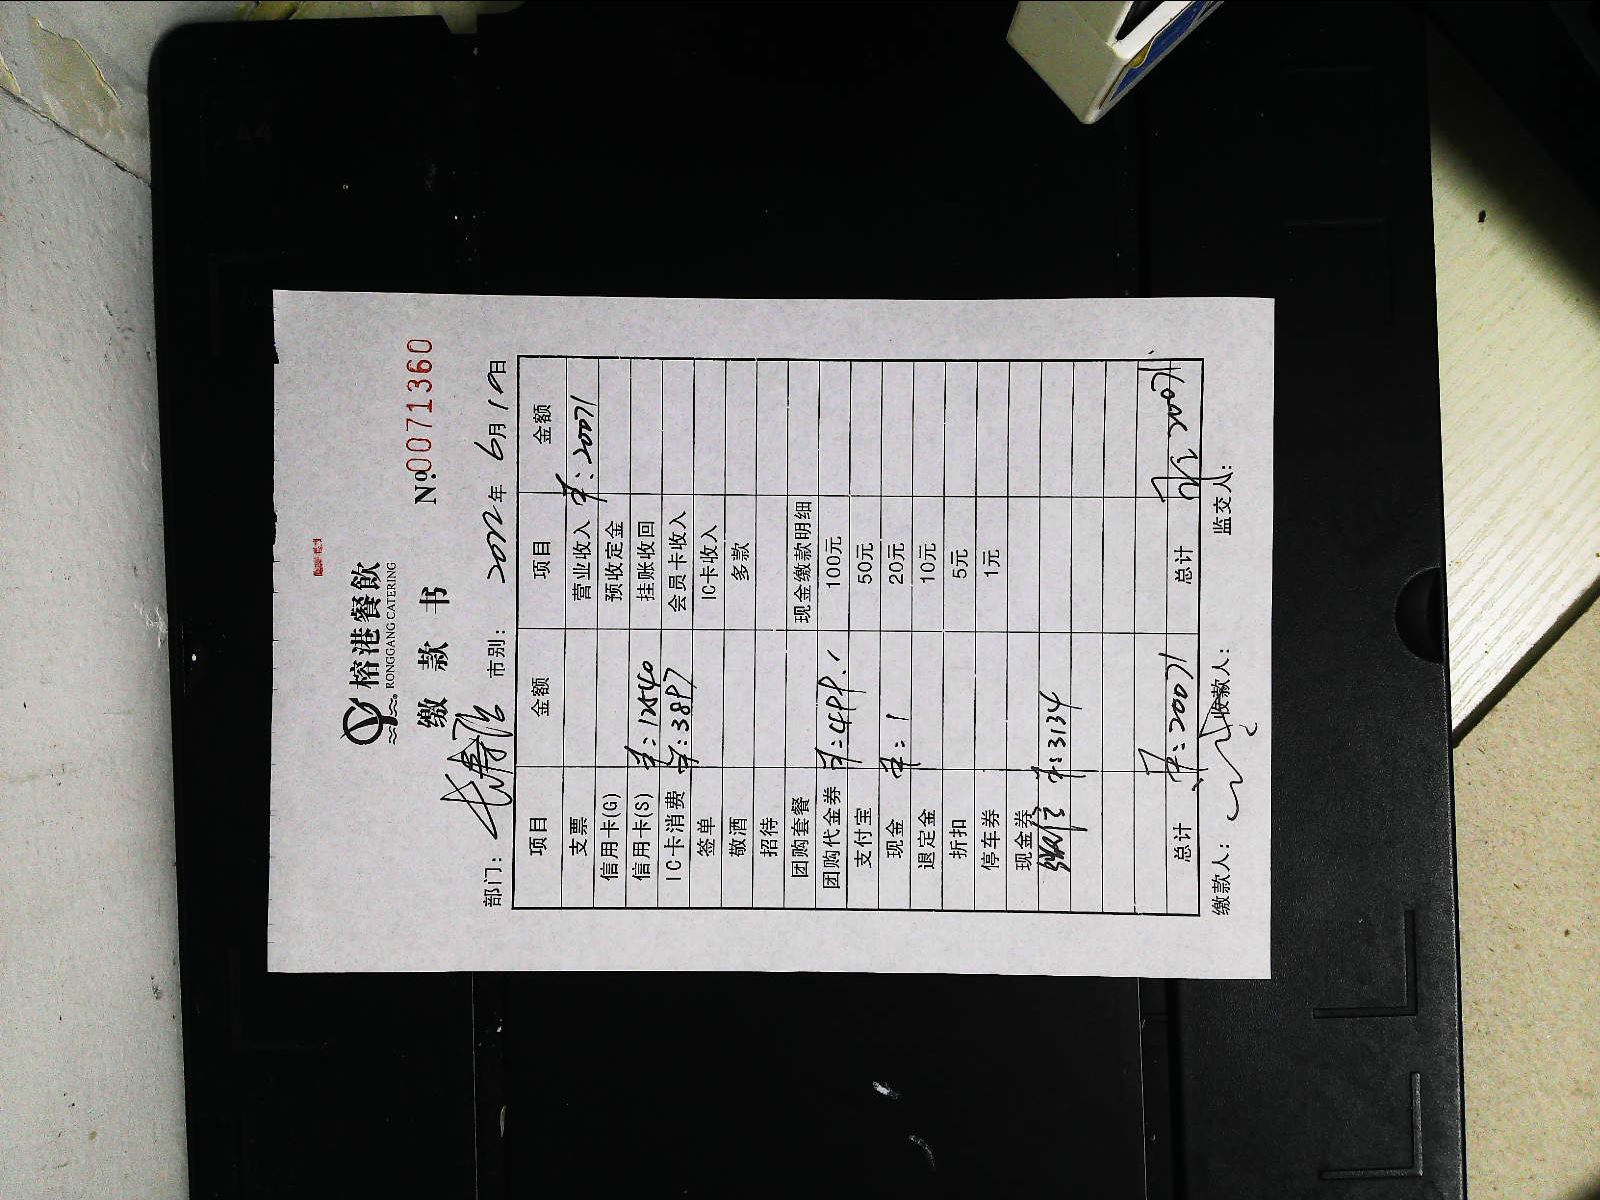 榕港餐飲
RONGGANG CATERING
缴 款 书 №0071360
部门: 长寿路 市别: 2022年 6月 19日
项目 金额 项目 金额
支票 营业收入 ¥:20071
信用卡(G) 预收定金
信用卡(S) ¥:12540 挂账收回
IC卡消费 ¥:3897 会员卡收入
签单 IC卡收入
敬酒 多款
招待
团购套餐 现金缴款明细
团购代金券 ¥:499. 100元
支付宝 50元
现金 ¥:1 20元
退定金 10元
折扣 5元
停车券 1元
现金券
微信 ¥:3134
总计 ¥:20071 总计 ¥:20071
缴款人: 收款人: 监交人: